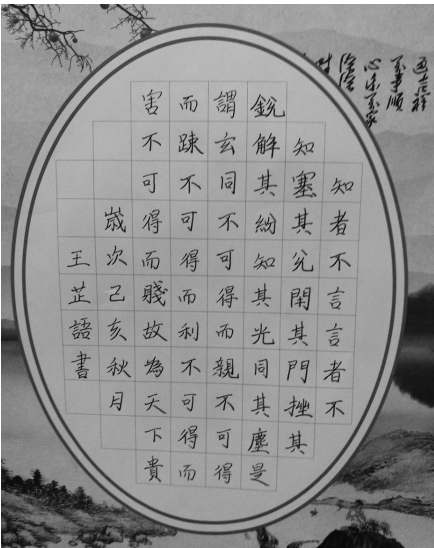 知者不言言者不
知塞其兌閉其門挫其
銳解其紛知其光同其塵是
謂玄同不可得而親不可得
而踈不可得而利不可得而
害不可得而賤故為天下貴
歲次己亥秋月
王芷語書